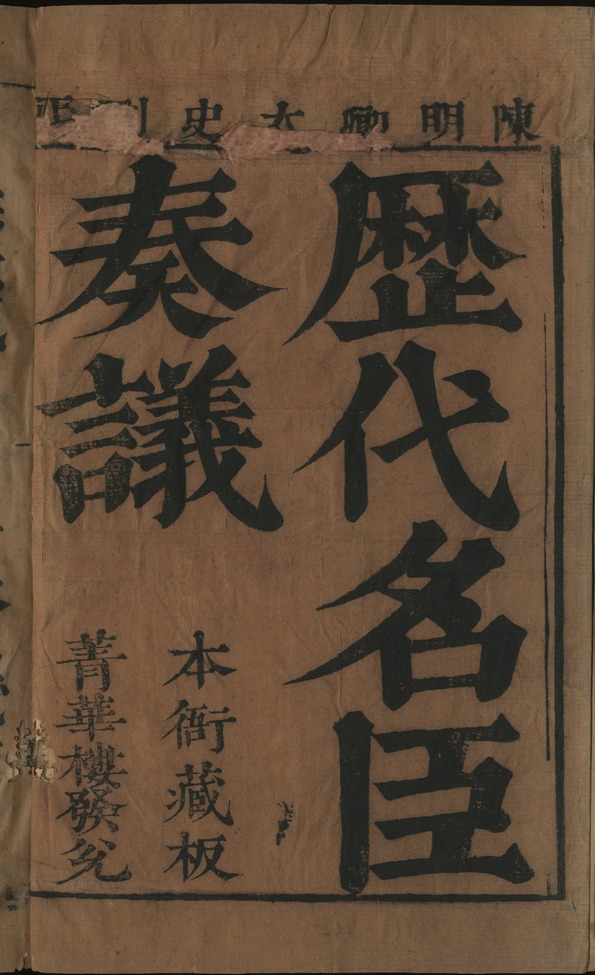 陳明卿太史刪正
歷代名臣
奏議
本衙藏板
菁華樓發兌